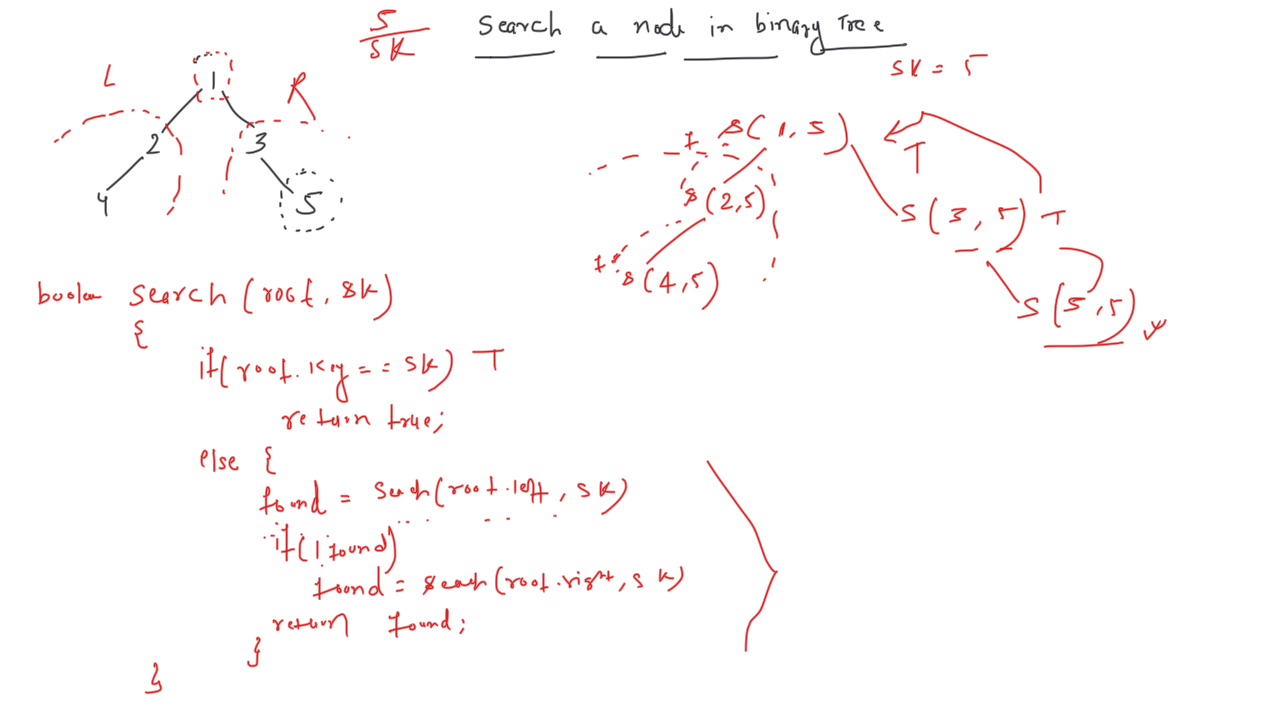 5
SK
Search a node in binary Tree
SK = 5
L
R
1
2
3
4
5
S(1,5)
T
S(2,5)
S(3,5) T
S(4,5)
S(5,5)
search (root, SK)
{
if(root.key == SK) T
return true;
else {
found = Seach(root.left, SK)
if(!found)
found = seach(root.right, SK)
return found;
}
}